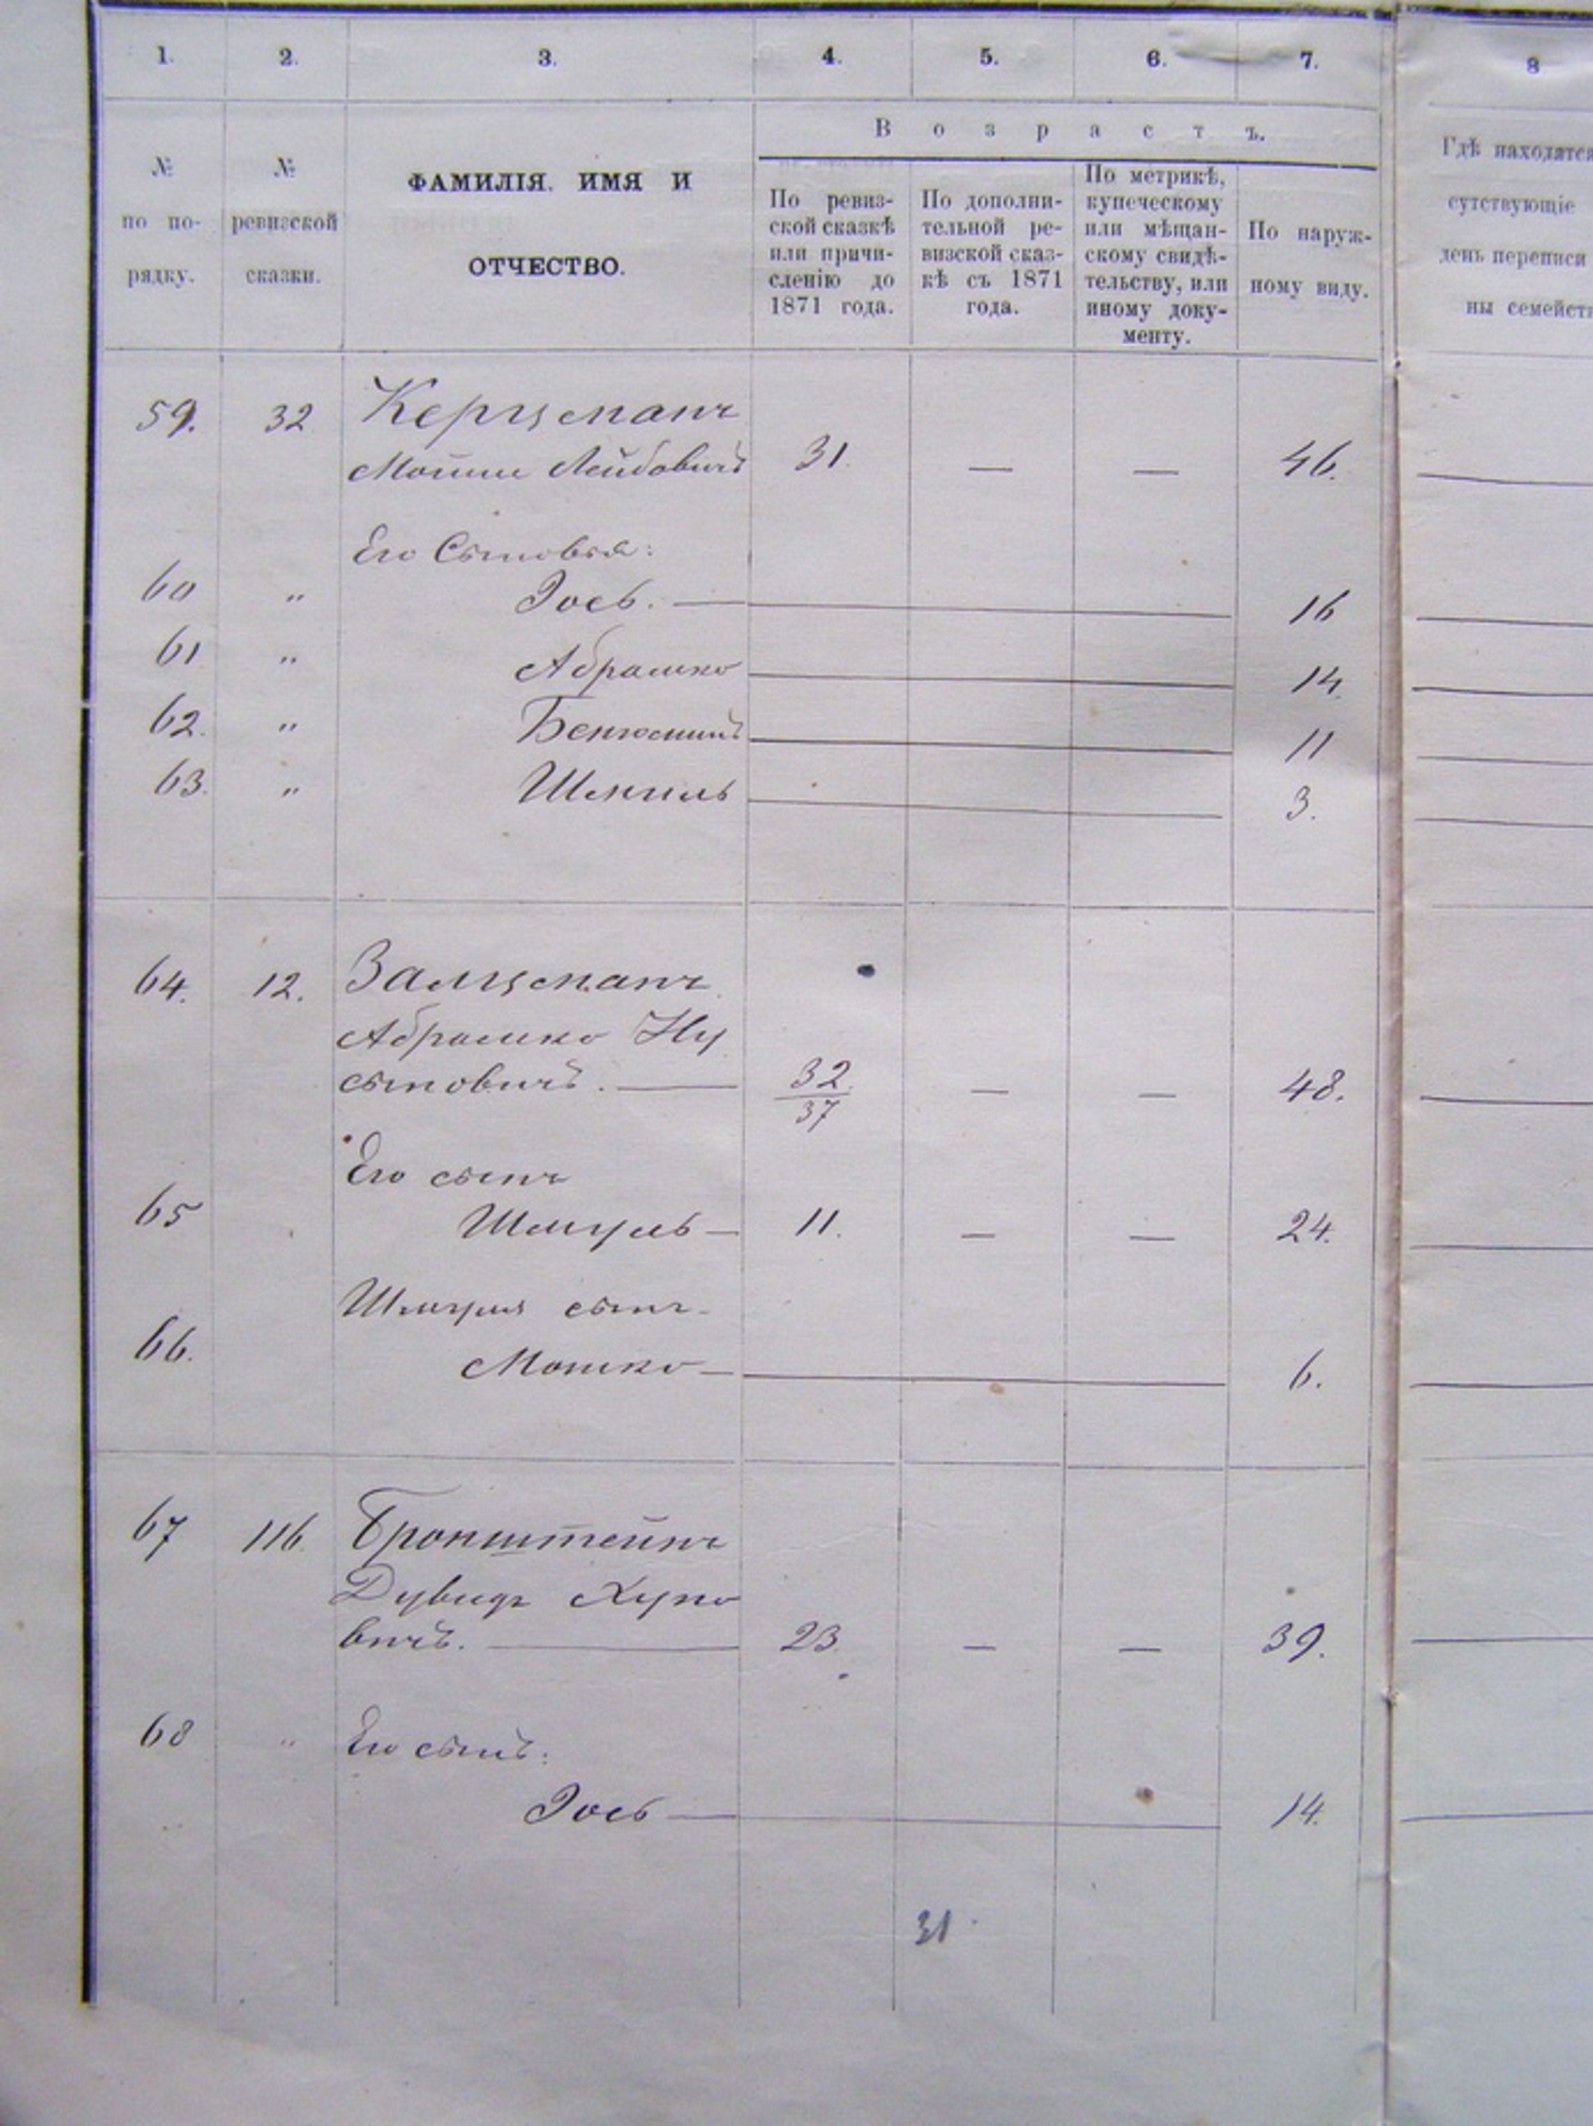 1. 2. 3. 4. 5. 6. 7. 8
В о з р а с т ъ.
№ по по-рядку.
№ ревизской сказки.
ФАМИЛІЯ. ИМЯ И
ОТЧЕСТВО.
По ревиз-
ской сказкѣ
или причи-
сленію до
1871 года.
По дополни-
тельной ре-
визской сказ-
кѣ съ 1871
года.
По метрикѣ,
купеческому
или мѣщан-
скому свидѣ-
тельству, или
иному доку-
менту.
По наруж-
ному виду.
Гдѣ находятся
сутствующіе
день переписи
ны семейств
59. 32 Керцманъ
Мошко Лейбовичъ 31. — — 46.
Его Сыновья:
60 " Іось. — 16
61 " Абрамко 14.
62. " Бенюминъ 11
63. " 3.
64. 12. Залцманъ
Абрамко Ну
сыновичъ. — 32/37 — — 48.
Его сынъ
65 Шмуль — 11. — — 24.
Шмуля сынъ
66. Мошко — 6.
67 116. Бронштейнъ
Дувидъ Хуно
вичъ. — 23. — — 39.
68 " Его сынъ:
Іось — 14.
31